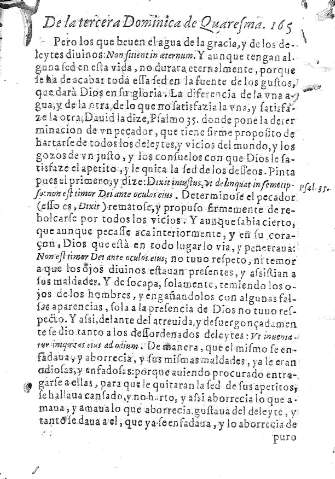 De la tercera Dominica de Quaresma. 165
Pero los que beuen el agua de la gracia, y de los de-
leytes diuinos: Non sitient in eternum. Y aunque tengan al-
guna sed en esta vida, no durara eternalmente, porque
se ha de acabar toda essa sed en la fuente de los gustos,
que darà Dios en su gloria. La diferencia de la vna a-
gua, y de la otra, de lo que no satisfazia la vna, y satisfa-
ze la otra, Dauid la dize, Psalmo 35. donde pone la deter
minacion de vn pecador, que tiene firme proposito de
hartarse de todos los deleytes, y vicios del mundo, y los
gozos de vn justo, y los consuelos con que Dios le sa-
tisfaze el apetito, y le quita la sed de los desseos. Pinta
pues el primero, y dize: Dixit iniustus, vt delinquat in semetip- Psal. 35.
so: non est timor Dei ante oculos eius. Determinose el pecador
(esso es, Dixit) rematose, y propuso firmemente de re-
bolcarse por todos los vicios. Y aunque sabia cierto,
que aunque pecasse aca interiormente, y en su cora-
çon, Dios que està en todo lugar lo via, y penetraua:
Non est timor Dei ante oculos eius, no tuuo respeto, ni temor
a que los ojos diuinos estauan presentes, y assistian a
sus maldades. Y de socapa, solamente, temiendo los o-
jos de los hombres, y engañandolos con algunas fal-
sas aparencias, sola a la presencia de Dios no tuuo res-
peto. Y assi, delante del atreuida, y desuergonçadamen
te se dio tanto a los desordenados deleytes: Vt inuenia-
tur iniquitas eius ad odium. De manera, que el mismo se en-
fadaua, y aborrecia, y sus mismas maldades, ya le eran
odiosas, y enfadosas: porque auiendo procurado entre-
garse a ellas, para que le quitaran la sed de sus apetitos,
se hallaua cansado, y no harto, y assi aborrecia lo que a-
maua, y amaua lo que aborrecia: gustaua del deleyte, y
tanto se daua a el, que ya se enfadaua, y lo aborrecia de
puro